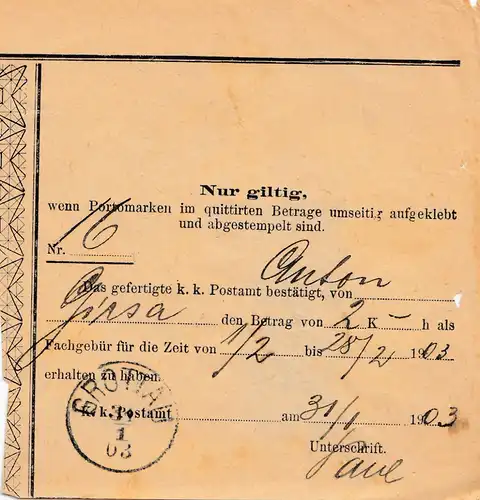 Nur giltig,
wenn Portomarken im quittirten Betrage umseitig aufgeklebt
und abgestempelt sind.
Nr. 16
Das gefertigte k. k. Postamt bestätigt, von Anton
Girsa den Betrag von 2 K – h als
Fachgebür für die Zeit von 1/2 bis 28/2 1903
erhalten zu haben.
GROTTAU
31
1
03
k. k. Postamt am 31/1 1903
Unterschrift.